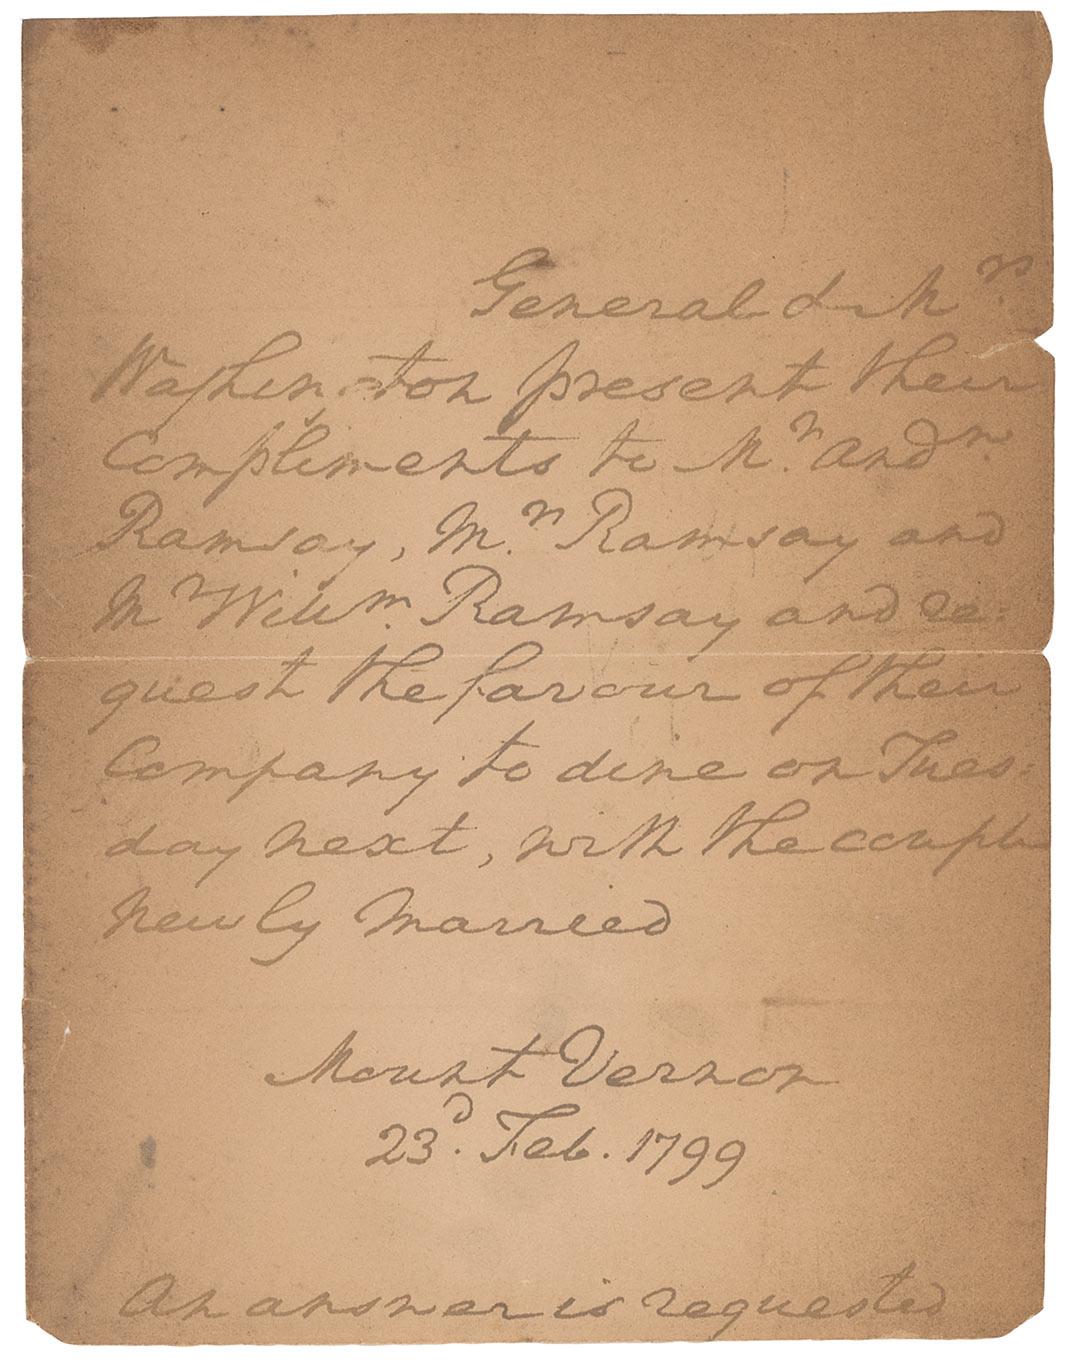 General & Mrs.
Washington present their
Compliments to Mr. Andw.
Ramsay, Mrs. Ramsay and
Mr Willm. Ramsay and re:
quest the favour of their
Company to dine on Tues:
day next, with the couple
newly Married
Mount Vernon
23d. Feb. 1799
An answer is requested